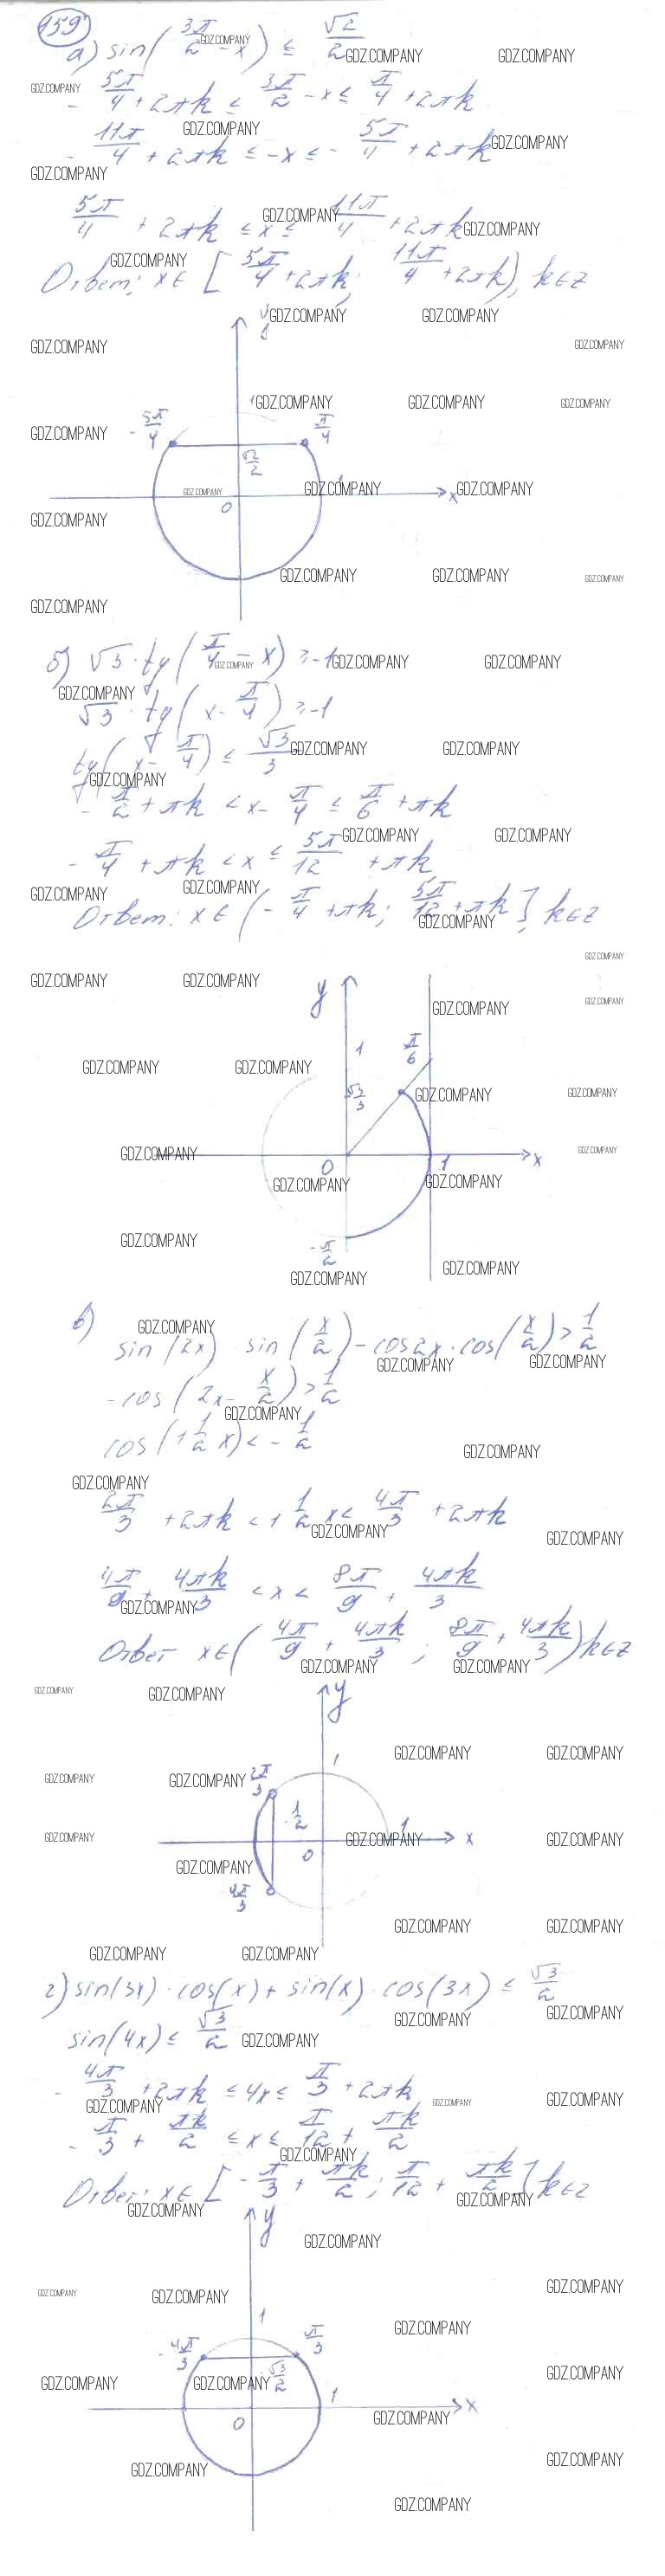 159
а) sin(3π/2 - x) ≤ √2/2
- 5π/4 + 2πk ≤ 3π/2 - x ≤ π/4 + 2πk
- 11π/4 + 2πk ≤ -x ≤ - 5π/4 + 2πk
5π/4 + 2πk ≤ x ≤ 11π/4 + 2πk
Ответ: x∈[5π/4 + 2πk; 11π/4 + 2πk), k∈Z
y
- 5π/4 π/4
√2/2
0 x
б) √3 · tg(π/4 - x) ≥ -1
√3 · tg(x - π/4) ≥ -1
tg(x - π/4) ≤ √3/3
- π/2 + πk < x - π/4 ≤ π/6 + πk
- π/4 + πk < x ≤ 5π/12 + πk
Ответ: x∈(- π/4 + πk; 5π/12 + πk], k∈Z
y
1 π/6
√3/3
0 1 x
- π/2
в)
sin(2x) sin(x/2) - cos2x · cos(x/2) > 1/2
- cos(2x - x/2) > 1/2
cos(1 1/2 x) < - 1/2
2π/3 + 2πk < 1 1/2 x < 4π/3 + 2πk
4π/9 + 4πk/3 < x < 8π/9 + 4πk/3
Ответ x∈(4π/9 + 4πk/3; 8π/9 + 4πk/3) k∈Z
y
1
2π/3
- 1/2
1 x
0
4π/3
г) sin(3x) · cos(x) + sin(x) · cos(3x) ≤ √3/2
sin(4x) ≤ √3/2
- 4π/3 + 2πk ≤ 4x ≤ π/3 + 2πk
- π/3 + πk/2 ≤ x ≤ π/12 + πk/2
Ответ: x∈[- π/3 + πk/2; π/12 + πk/2] k∈Z
y
1
- 4π/3 π/3
√3/2
1 x
0
GDZ.COMPANY